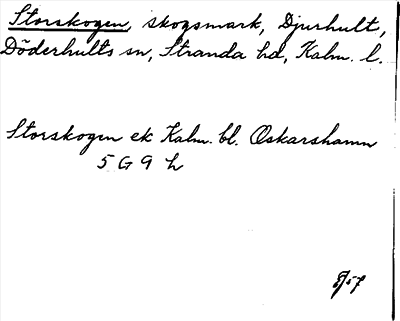 Storskogen, skogsmark, Djurhult,
Döderhults sn, Stranda hd, Kalm. l.
Storskogen ek Kalm. bl. Oskarshamn
5 G 9 h